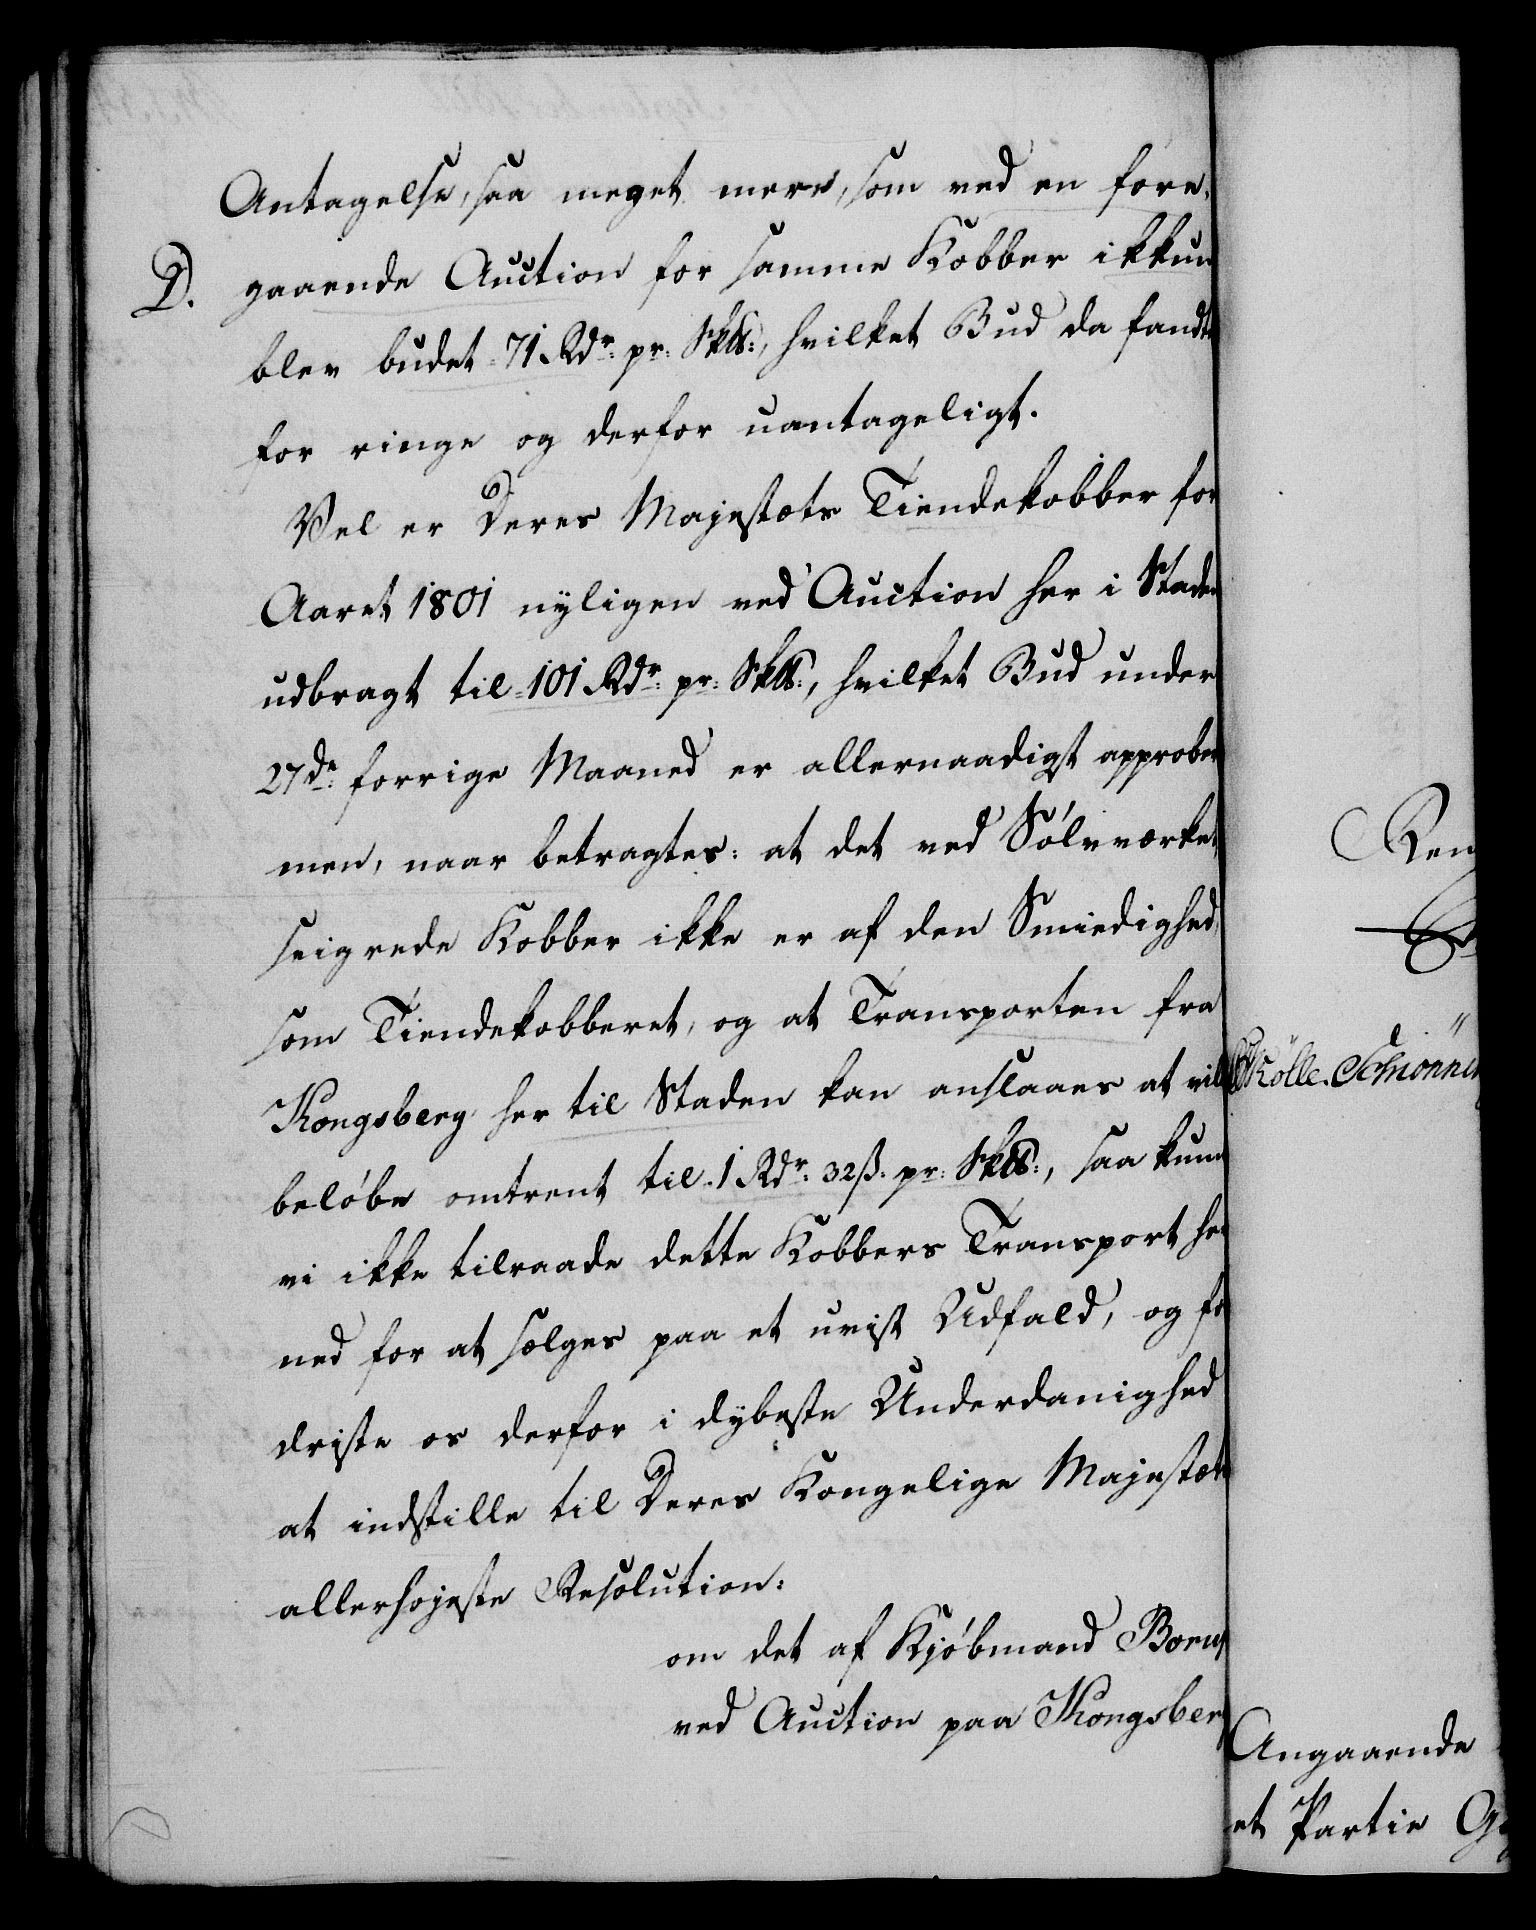 Antagelse, saa meget mere, som ved en fore-
D. gaaende Auction for samme Kobber ikkun
blev budet 71 Rdr: pr: Sk℔:, hvilket Bud da fandt
for ringe og derfor uantageligt.
Vel er Deres Majestæts Tiendekobber for
Aaret 1801 nyligen ved Auction her i Staden
udbragt til 101 Rdr: pr: Sk℔:, hvilket Bud under
27de: forrige Maaned er allernaadigst approber
men, naar betragtes: at det ved Sølvværket
seigrede Kobber ikke er af den Smiedighed,
som Tiendekobberet, og at Transporten fra
Kongsberg her til Staden kan anslaaes at vil
beløbe omtrent til 1 Rdr: 32 ß: pr: Sk℔:, saa kunn
vi ikke tilraade dette Kobbers Transport her
ned for at sælges paa et uvist Udfald, og for
driste os derfor i dybeste Underdanighed
at indstille til Deres Kongelige Majestæts
allerhøjeste Resolution:
om det af Kjøbmand
ved Auction paa Kongsberg
Ren
Kölle. Schiönn
Angaaende
et Partie